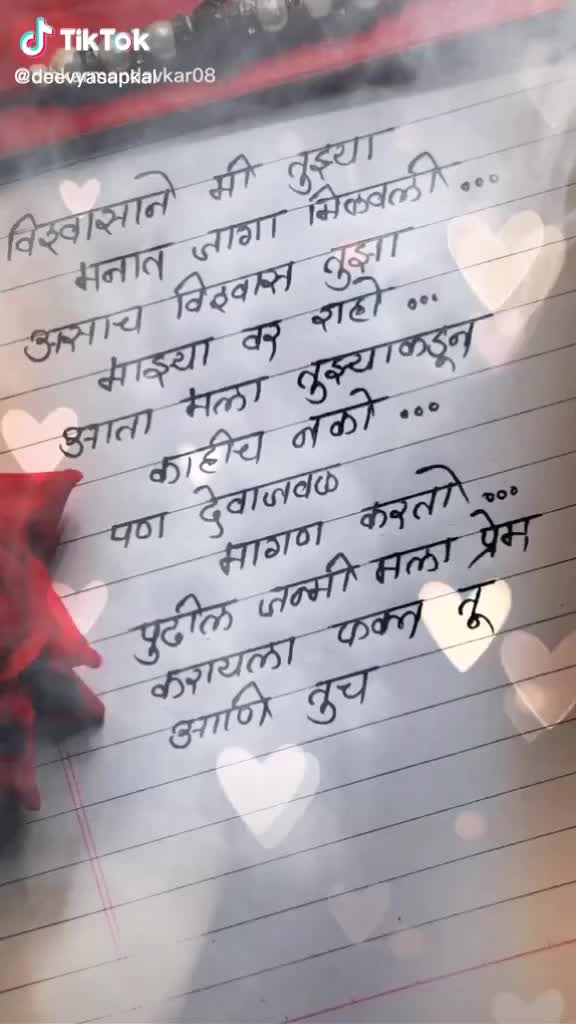 TikTok
@deevyasapkal
विश्वासाने मी तुझ्या
मनात जागा मिळवली ...
असाच विश्वास तुझा
माझ्या वर राहो ...
आता मला तुझ्याकडून
काहीच नको ...
पण देवाजवळ
मागण करतो ...
पुढील जन्मी मला प्रेम
करायला फक्त तू
आणि तुच